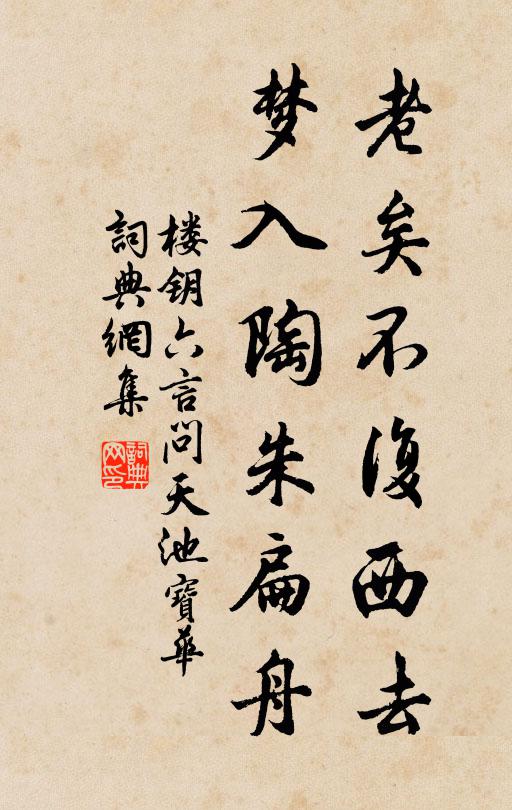 老矣不復西去
梦入陶朱扁舟
楼钥六言問天池寶華
詞典網集
詞典網印